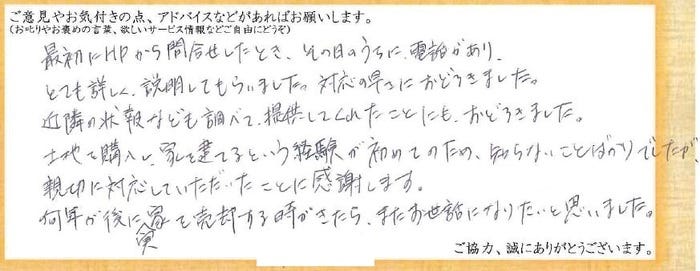 ご意見やお気付きの点、アドバイスなどがあればお願いします。
(お叱りやお褒めの言葉、欲しいサービス情報などご自由にどうぞ)
最初にHPから問合せしたとき、その日のうちに、電話があり、
とても詳しく、説明してもらいました。対応の早さにおどろきました。
近隣の状報なども調べて、提供してくれたことにも、おどろきました。
土地を購入し、家を建てるという経験が初めてのため、知らないことばかりでしたが、
親切に対応していただいたことに感謝します。
何年か後に家を売却する時がきたら、またお世話になりたいと思いました。
ご協力、誠にありがとうございます。